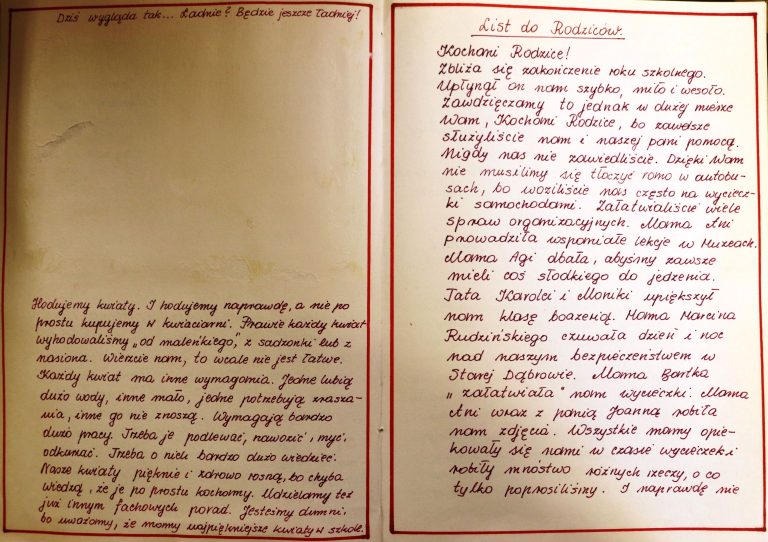 Dziś wygląda tak... Ładnie? Będzie jeszcze ładniej!
Hodujemy kwiaty. I hodujemy naprawdę, a nie po
prostu kupujemy w kwiaciarni. Prawie każdy kwiat
wyhodowaliśmy „od maleńkiego," z sadzonki lub z
nasiona. Wierzcie nam, to wcale nie jest łatwe.
Każdy kwiat ma inne wymagania. Jedne lubią
dużo wody, inne mało, jedne potrzebują zrasza-
nia, inne go nie znoszą. Wymagają bardzo
dużo pracy. Trzeba je podlewać, nawozić, myć,
odkurzać. Trzeba o nich bardzo dużo wiedzieć.
Nasze kwiaty pięknie i zdrowo rosną, bo chyba
wiedzą, że je po prostu kochamy. Udzielamy też
już innym fachowych porad. Jesteśmy dumni,
bo uważamy, że mamy najpiękniejsze kwiaty w szkole.
List do Rodziców.
Kochani Rodzice!
Zbliża się zakończenie roku szkolnego.
Upłynął on nam szybko, miło i wesoło.
Zawdzięczamy to jednak w dużej mierze
Wam, Kochani Rodzice, bo zawsze
służyliście nam i naszej pani pomocą.
Nigdy nas nie zawiedliście. Dzięki Wam
nie musieliśmy się tłoczyć rano w autobu-
sach, bo woziliście nas często na wyciecz-
ki samochodami. Załatwialiście wiele
spraw organizacyjnych. Mama Ani
prowadziła wspaniałe lekcje w Muzeach.
Mama Agi dbała, abyśmy zawsze
mieli coś słodkiego do jedzenia.
Tata Karolci i Moniki upiększył
nam klasę boazerią. Mama Marcina
Rudzińskiego czuwała dzień i noc
nad naszym bezpieczeństwem w
Starej Dąbrowie. Mama Bartka
„załatwiała" nam wycieczki. Mama
Ani wraz z panią Joanną robiła
nam zdjęcia. Wszystkie mamy opie-
kowały się nami w czasie wycieczek i
robiły mnóstwo różnych rzeczy, o co
tylko poprosiliśmy. I naprawdę nie